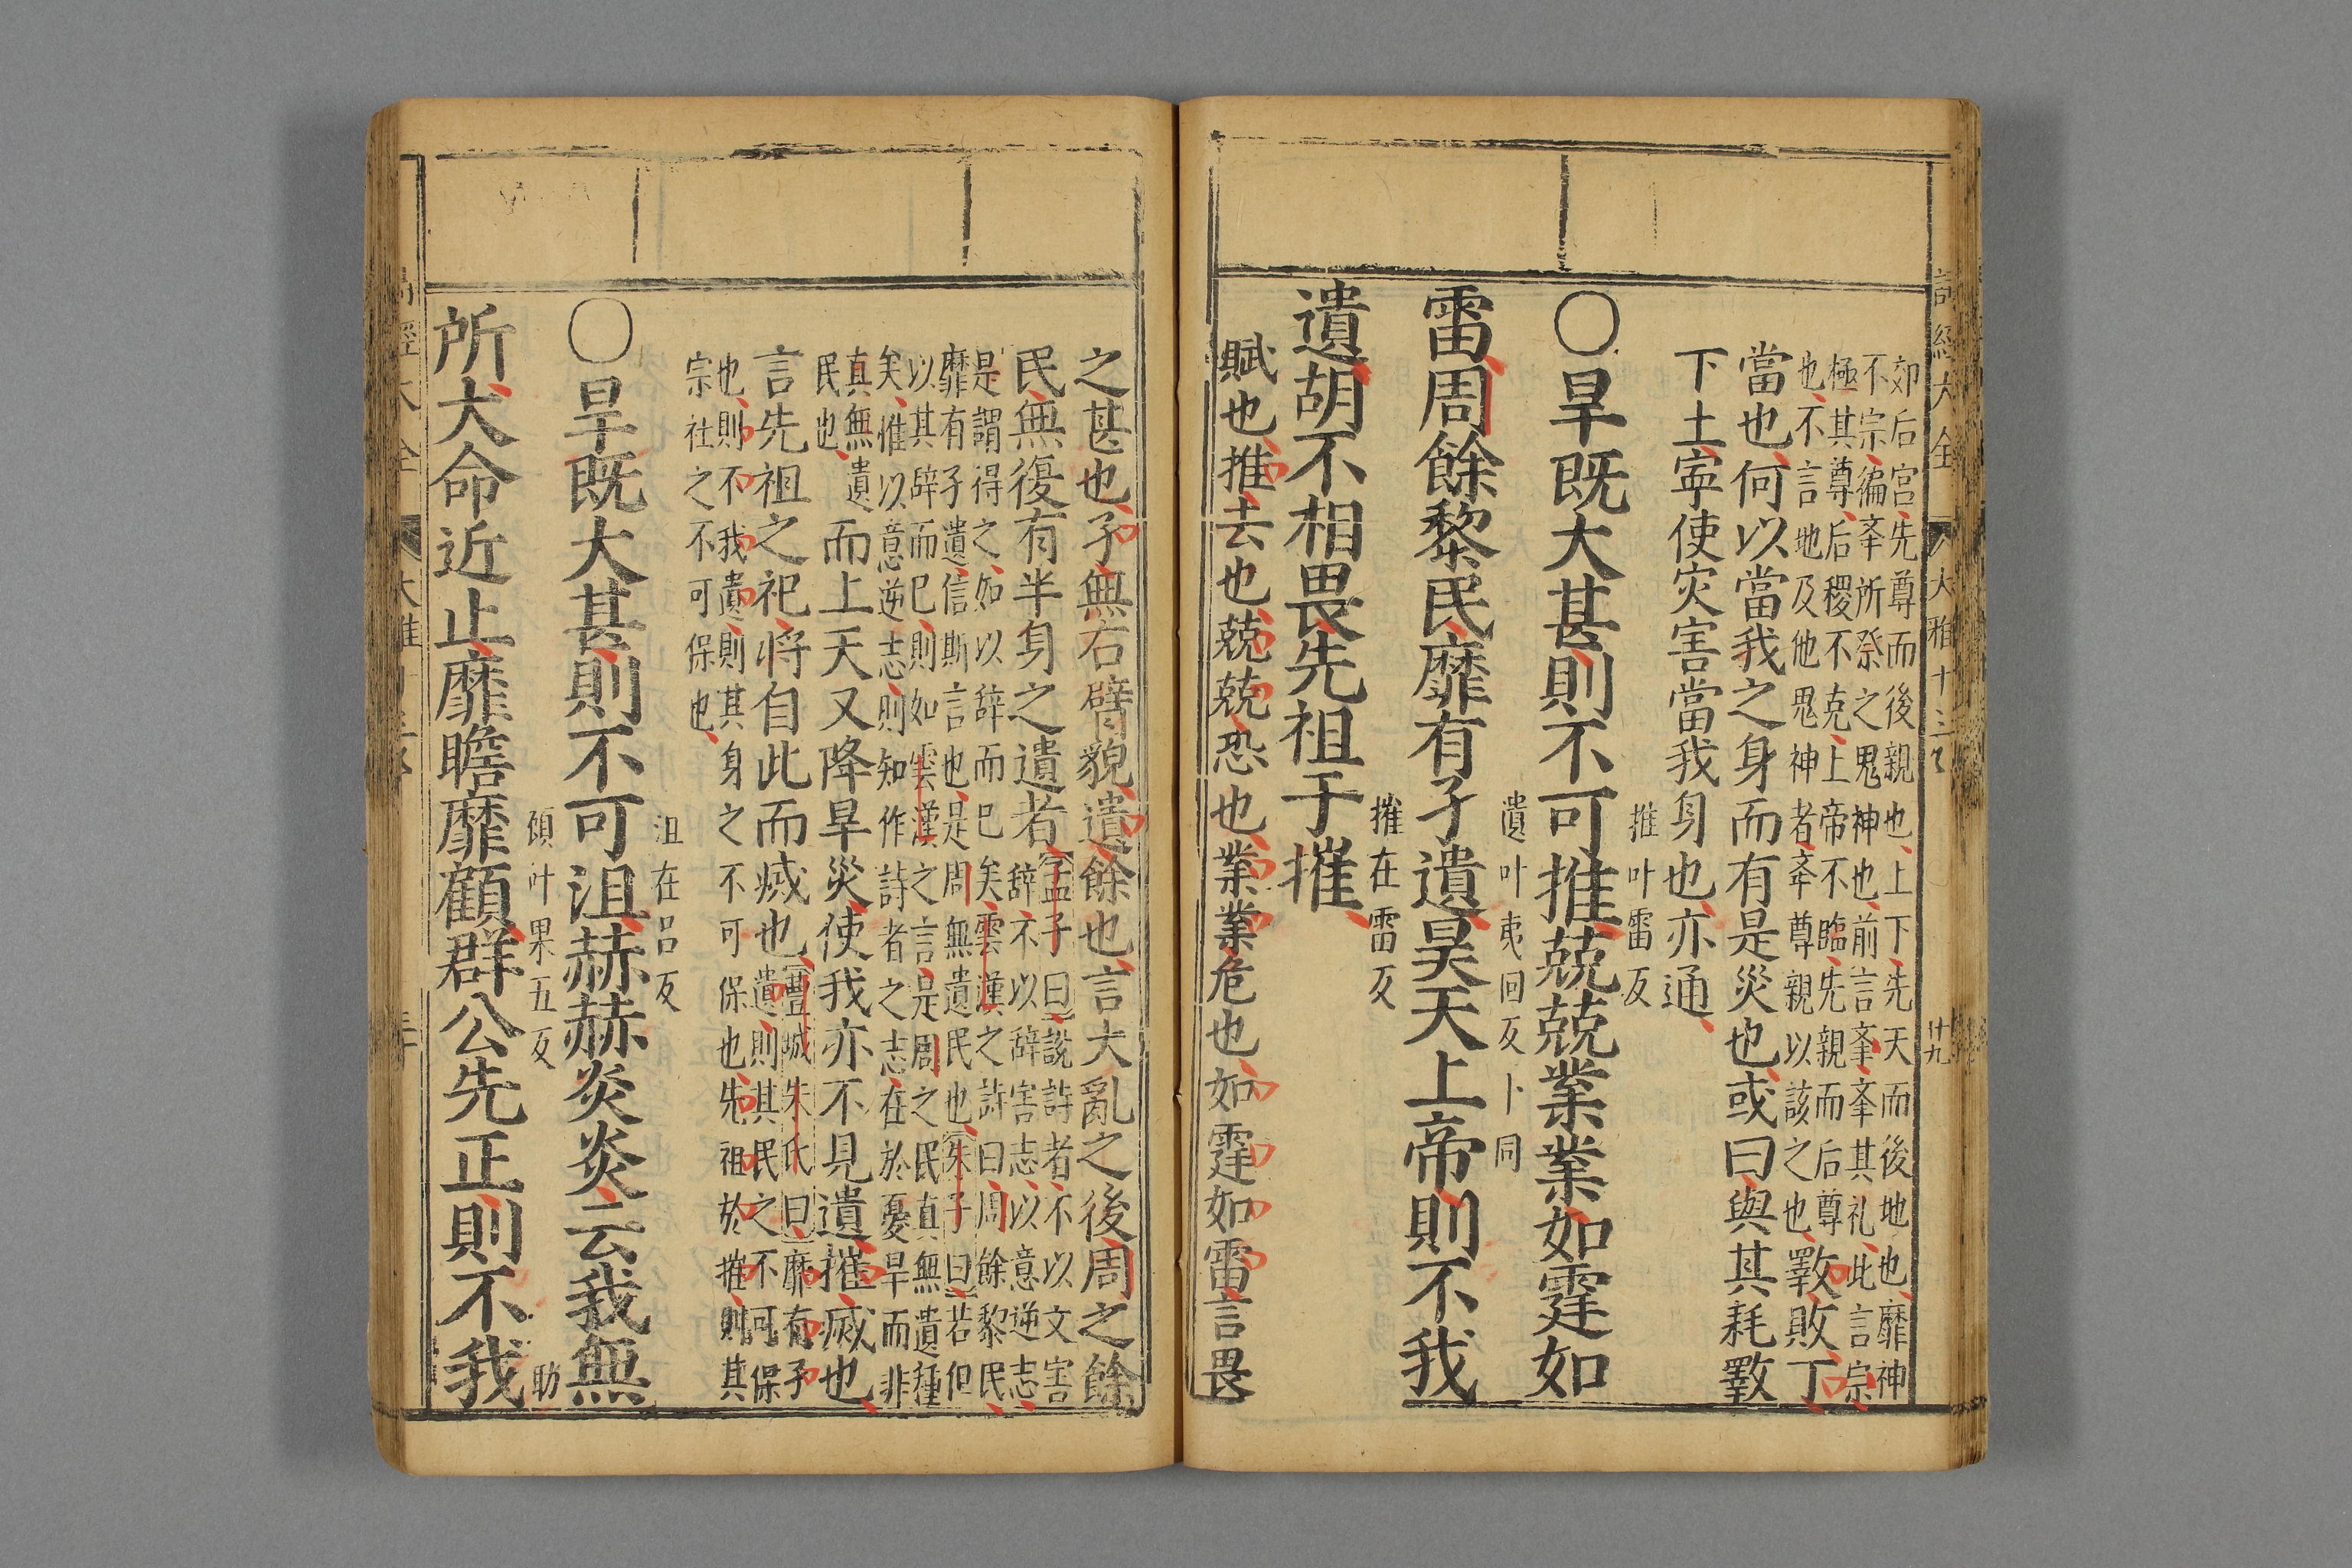 詩經大全 大雅十三 廿九
郊后宫先尊而後親也上下先天而後地也靡神
不宗徧夲所祭之鬼神也前言夆夆其礼此言宗
極其尊后稷不克上帝不臨先親而后尊
也不言地及他鬼神者夲尊親以該之也斁敗丁
當也何以當我之身而有是災也或曰與其耗斁
下土寧使灾害當我身也亦通
推叶雷反
〇旱既大甚則不可推兢兢業業如霆如
遺叶夷回反卜同
雷周餘黎民靡有孑遺昊天上帝則不我
摧在雷反
遺胡不相畏先祖于摧
賦也推去也兢兢恐也業業危也如霆如雷言畏
之甚也孑無右臂貌遺餘也言大亂之後周之餘
民無復有半身之遺者
孟子曰說詩者不以文害
辭不以辭害志以意逆志
是謂得之如以辭而已矣雲漢之詩曰周餘黎民
靡有孑遺信斯言也是周無遺民也朱子曰若但
以其辭而已則如雲漢之言是周之民真無遺種
矣惟以意逆志則知作詩者之志在於憂旱而非
真無遺
民也
而上天又降旱災使我亦不見遺摧滅也
言先祖之祀將自此而滅也
豐城朱氏曰靡有孑
遺則其民之不可保
也則不我遺則其身之不可保也先祖於摧則其
宗社之不可保也
沮在吕反
〇旱既大甚則不可沮赫赫炎炎云我無
顧叶果五反 助
所大命近止靡瞻靡顧群公先正則不我